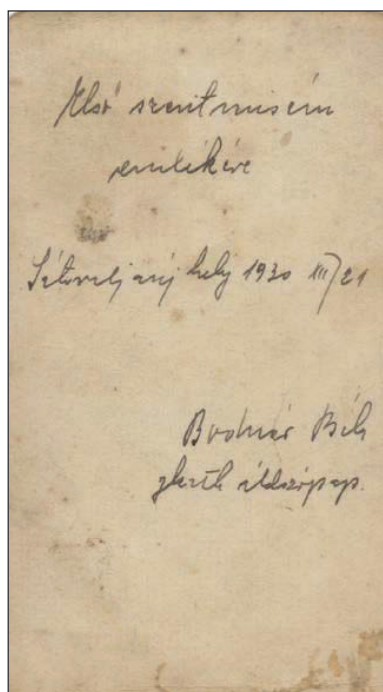 Első szentmisém
emlékére
Sátoraljaújhely 1930 III/21
Bodnár Béla
áldozópap.